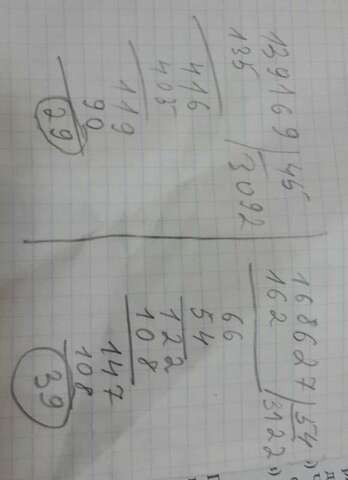 139169 | 45
135 | 3092
416
405
119
90
29
168627 | 54
162 | 3122
66
54
122
108
147
108
39